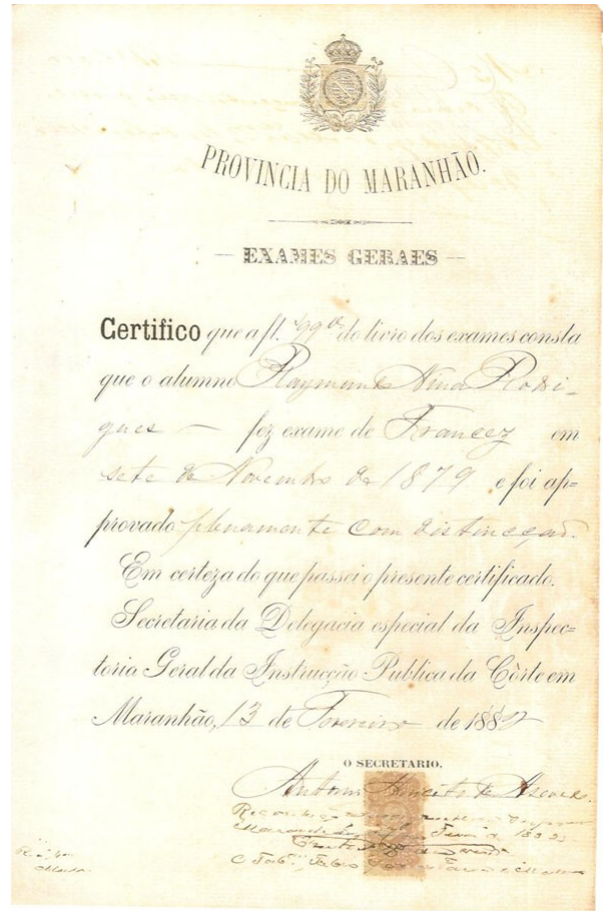 PROVINCIA DO MARANHÃO.
EXAMES GERAES
Certifico que a fl. do livro dos exames consta
que o alumno Raymundo Nina Rodri-
gues — fez exame de Francez em
sete de Novembro de 1879 e foi ap-
provado plenamente com distincção.
Em certeza do que passei o presente certificado.
Secretaria da Delegacia especial da Inspec-
toria Geral da Instrucção Publica da Côrte em
Maranhão, 13 de Fevereiro de 1882
O SECRETARIO.
Antonio